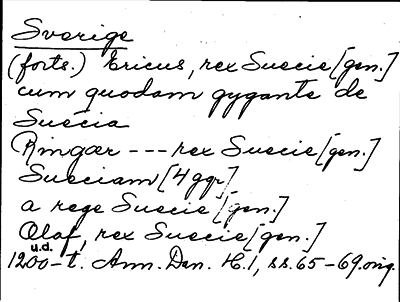 Sverige
(forts.) Ericus, rex Suecie [gen.]
cum quodam gygante de
Suecia
Ringær --- rex Suecie [gen.]
Sueciam [4 ggr]
a rege Suecie [gen.]
Olaf, rex Suecie [gen.]
u.d.
1200-t. Ann. Dan. H. 1, ss. 65-69. orig.